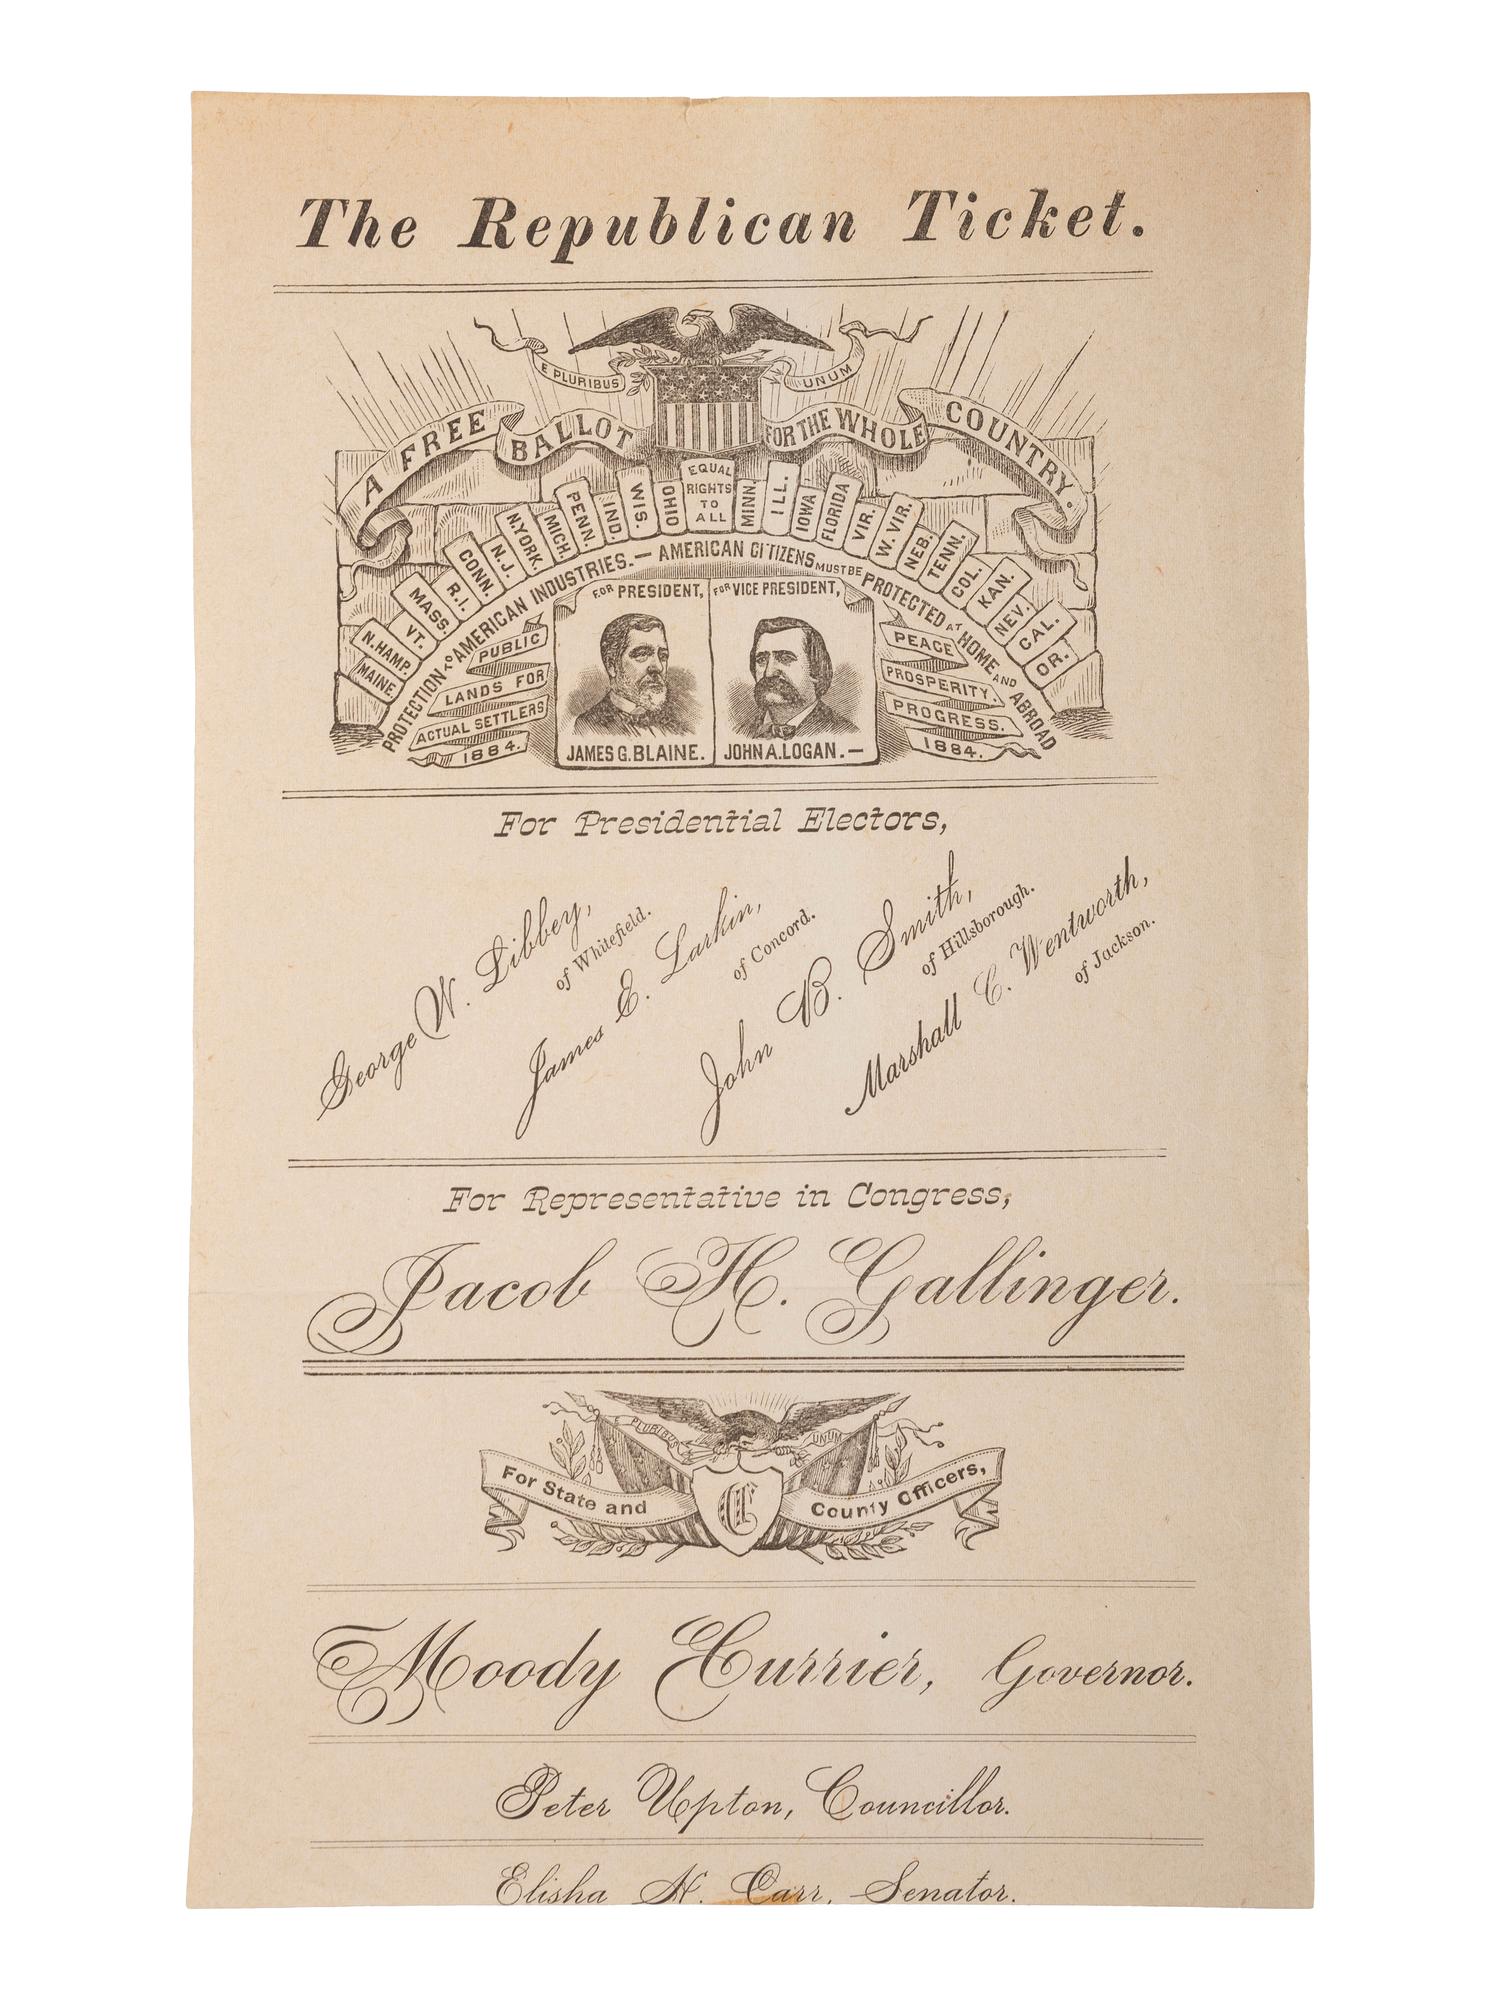 The Republican Ticket.
E PLURIBUS UNUM
A FREE BALLOT FOR THE WHOLE COUNTRY.
MAINE
N.HAMP.
VT.
MASS.
R.I.
CONN.
N.J.
N.YORK.
MICH.
PENN.
IND.
WIS.
OHIO
EQUAL
RIGHTS
TO
ALL
MINN.
ILL.
IOWA
FLORIDA
VIR.
W.VIR.
NEB.
TENN.
COL.
KAN.
NEV.
CAL.
OR.
PROTECTION TO AMERICAN INDUSTRIES.— AMERICAN CITIZENS MUST BE PROTECTED AT HOME AND ABROAD
PUBLIC
LANDS FOR
ACTUAL SETTLERS
1884.
FOR PRESIDENT,
JAMES G. BLAINE.
FOR VICE PRESIDENT,
JOHN A. LOGAN.—
PEACE
PROSPERITY.
PROGRESS.
1884.
For Presidential Electors,
George W. Libbey,
of Whitefield.
James E. Larkin,
of Concord.
John B. Smith,
of Hillsborough.
Marshall C. Wentworth,
of Jackson.
For Representative in Congress,
Jacob H. Gallinger.
E PLURIBUS UNUM
For State and County Officers,
C
Moody Currier, Governor.
Peter Upton, Councillor.
Elisha H. Carr, Senator.